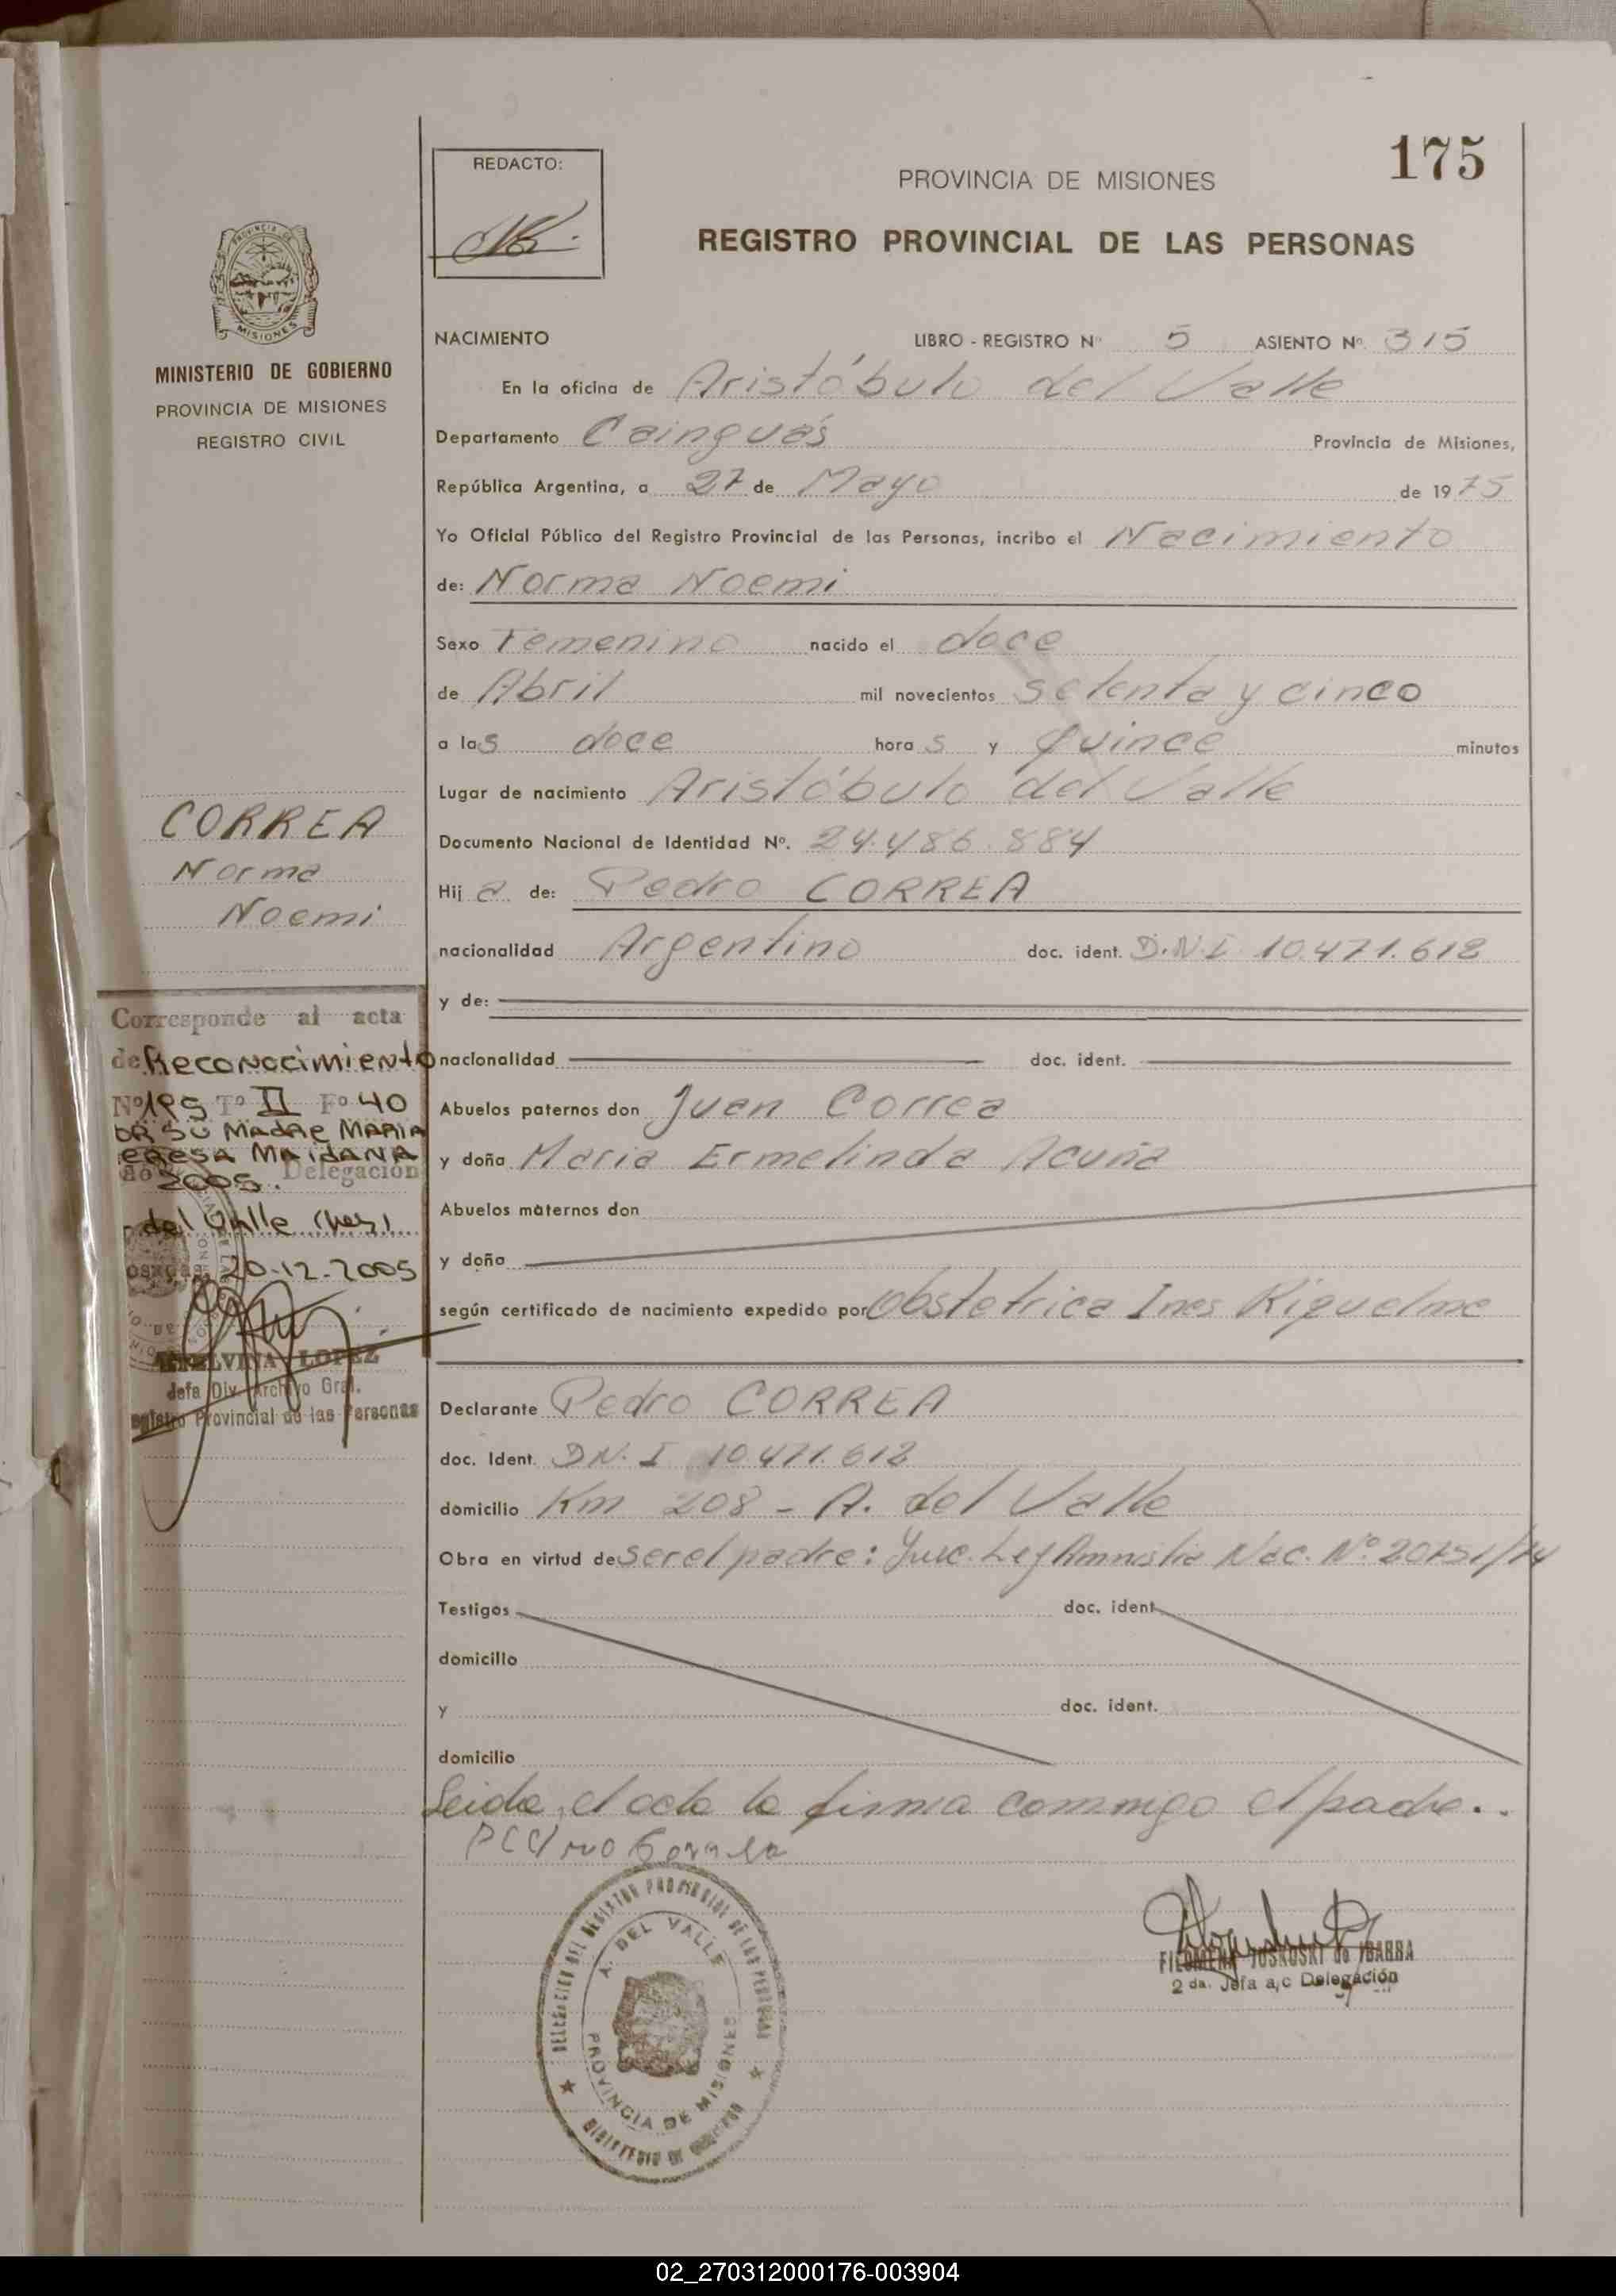 175
REDACTO:
PROVINCIA DE MISIONES
REGISTRO PROVINCIAL DE LAS PERSONAS
PROVINCIA DE
MISIONES
MINISTERIO DE GOBIERNO
PROVINCIA DE MISIONES
REGISTRO CIVIL
NACIMIENTO LIBRO - REGISTRO Nº 5 ASIENTO Nº 315
En la oficina de Aristóbulo del Valle
Departamento Cainguás Provincia de Misiones,
República Argentina, a 27 de Mayo de 1975
Yo Oficial Público del Registro Provincial de las Personas, incribo el Nacimiento
de: Norma Noemi
Sexo Femenino nacido el doce
de Abril mil novecientos setenta y cinco
a las doce horas y quince minutos
Lugar de nacimiento Aristóbulo del Valle
Documento Nacional de Identidad Nº. 24.486.884
Hija de: Pedro CORREA
nacionalidad Argentino doc. ident. D.N.I. 10.471.612
y de:
nacionalidad doc. ident.
Abuelos paternos don Juan Correa
y doña Maria Ermelinda Acuña
Abuelos maternos don
y doña
según certificado de nacimiento expedido por Obstetrica Ines Riquelme
Declarante Pedro CORREA
doc. Ident. D.N.I 10.471.612
domicilio Km 208 - A. del Valle
Obra en virtud de ser el padre: Ley Amnistia Nac. Nº 20751/74
Testigos doc. ident
domicilio
y doc. ident.
domicilio
Leida el acta la firma conmigo el padre..
CORREA
Norma
Noemi
Corresponde al acta
de Reconocimiento
Nº 195 Tº II Fº 40
DR SU MADRE MARIA
MAIDANA
2005. Delegación
del Valle (Mes)
20-12-2005
LOPEZ
Jefa Div. Archivo Gral.
Provincial de las Personas
DELEGACION DEL REGISTRO PROVINCIAL DE LAS PERSONAS
A. DEL VALLE
PROVINCIA DE MISIONES
MINISTERIO DE GOBIERNO
FILOMENA JUSKOSKI de IBARRA
2 da. Jefa a,c Delegación
02_270312000176-003904